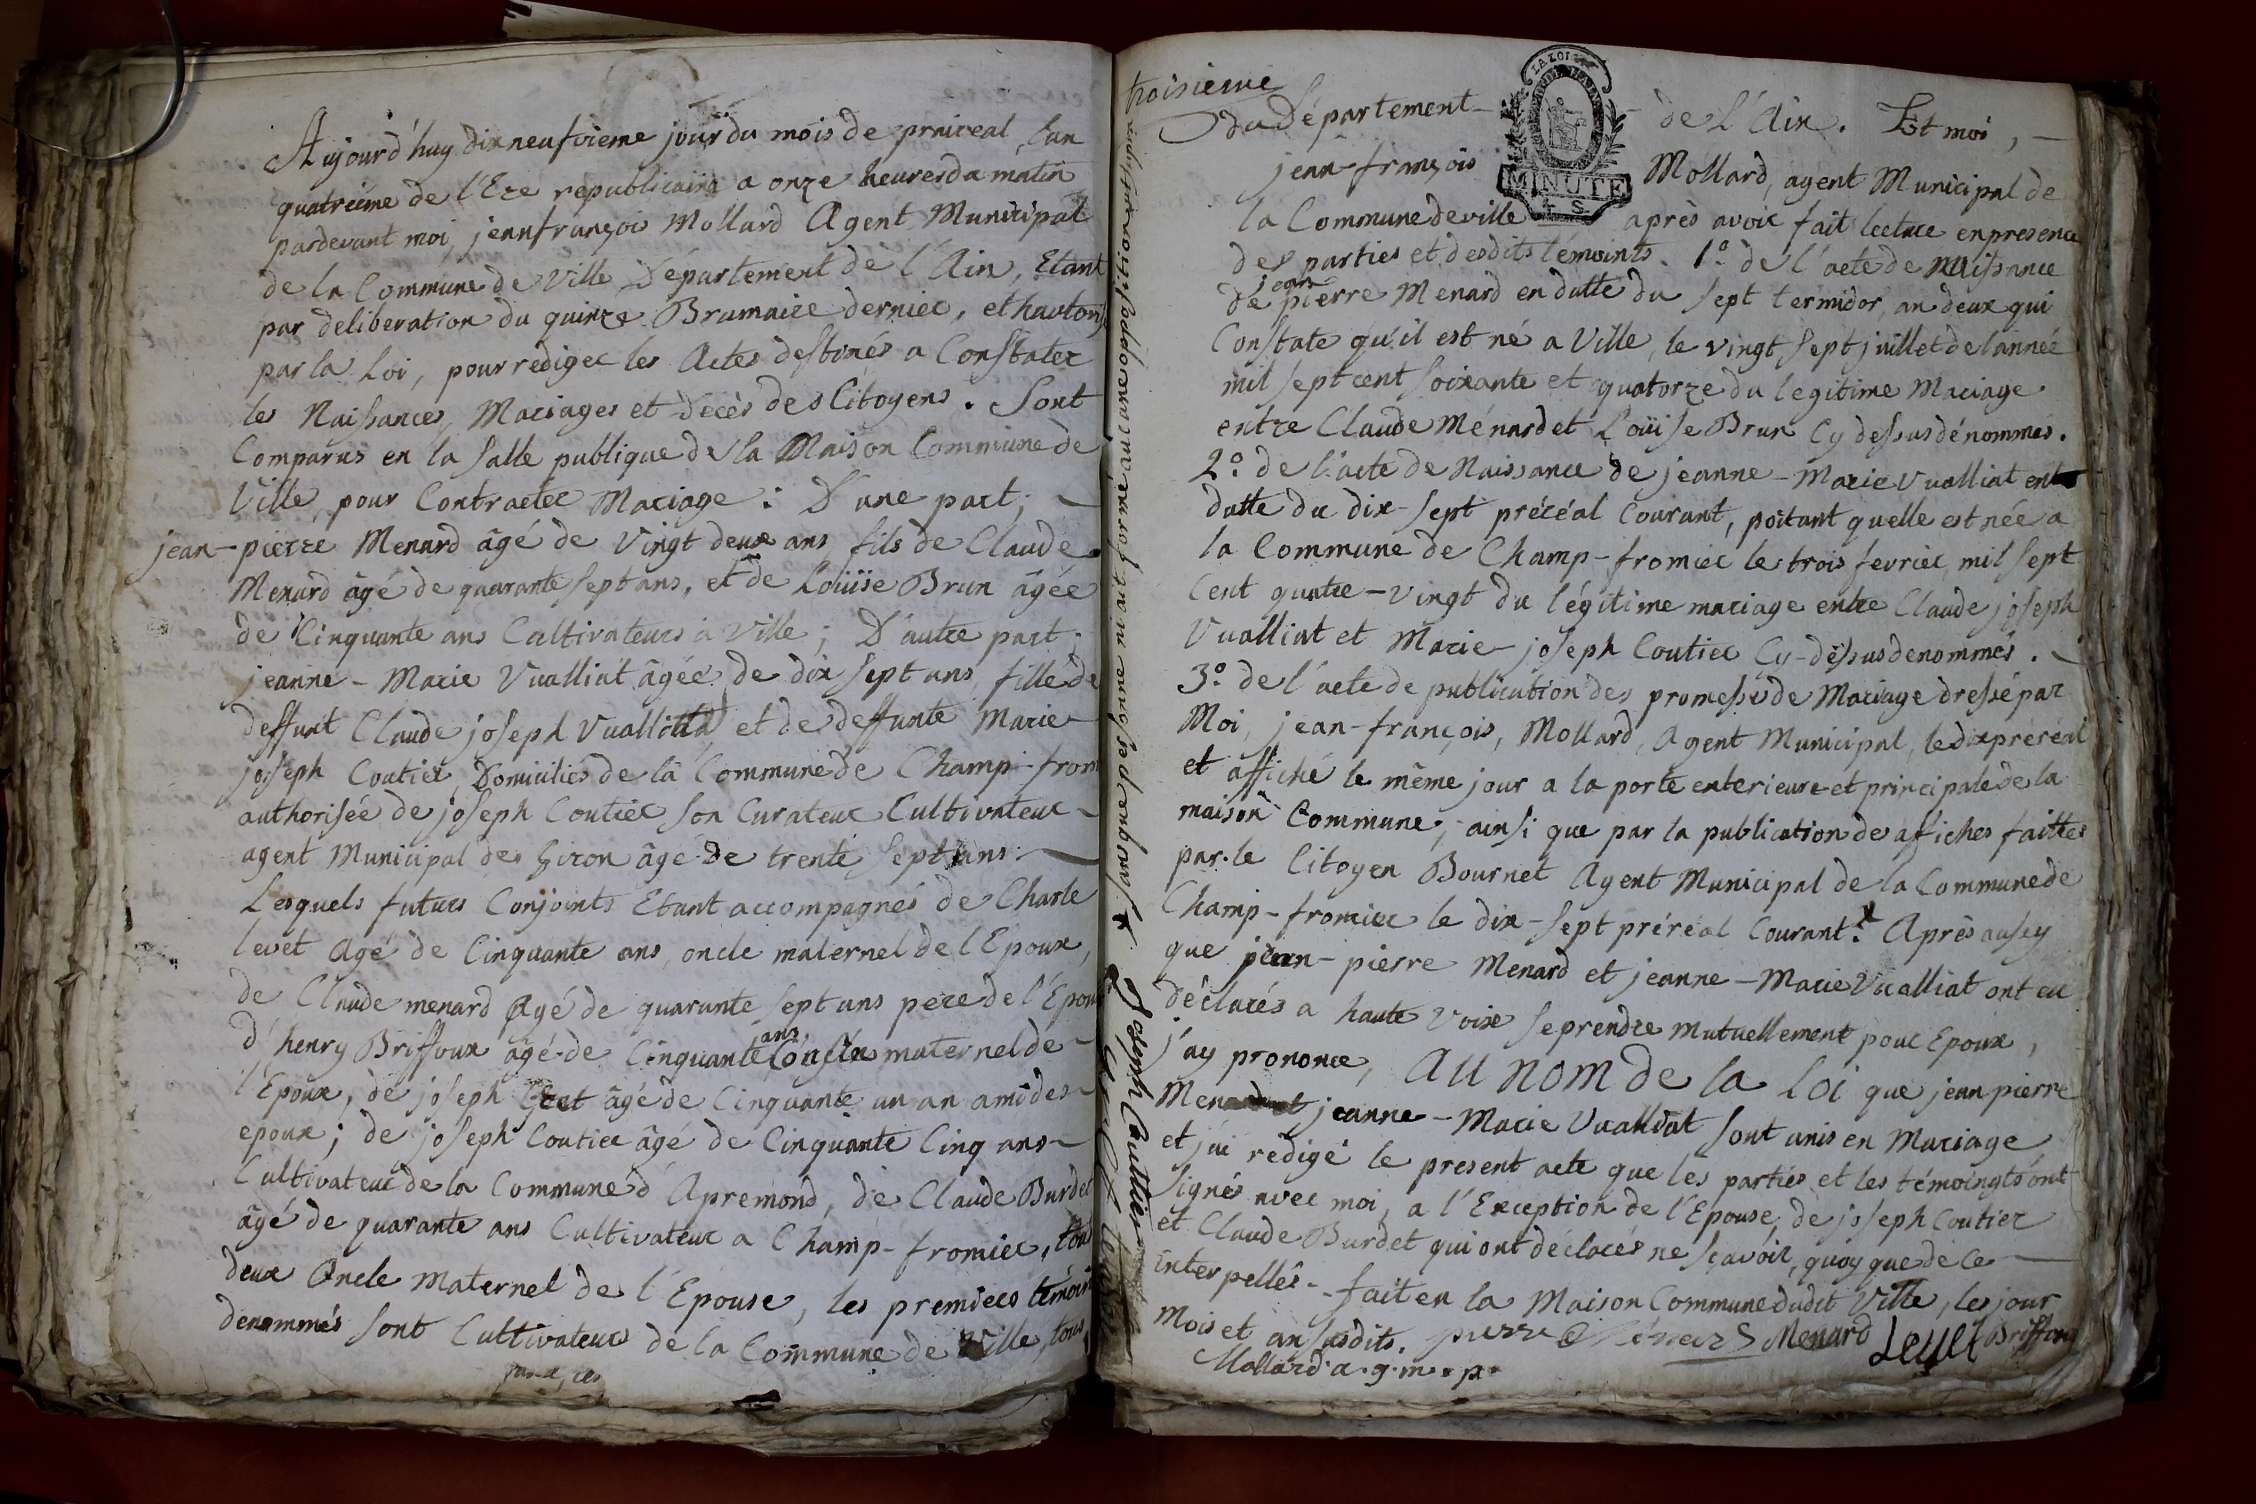 Aujourd'huy dix neufvieme jour du mois de prairéal, l'an
quatrième de l'Ere republicaine a onze heures da matin
pardevant moi, jean françois Mollard Agent Municipal
de la Commune de Ville Département de l'Ain, Etant
par deliberation du quinze Brumaire dernier, et hautoris
par la Loi, pour rediger les Actes destinés a Constater
les Naissances, Mariages et Décès des Citoyens. Sont
Comparus en la Salle publique de la Maison Commune de
Ville, pour Contracter Mariage : D'une part ;
jean-pierre Menard âgé de Vingt deux ans, fils de Claude
Menard âgé de quarante sept ans, et de Louïse Brun âgée
de Cinquante ans Cultivateurs a Ville ; D'autre part.
jeanne-Marie Vualliat âgée de dix sept ans, fille de
deffunt Claude joseph Vualliat et de deffunte Marie
joseph Coutier, Domiciliés de la Commune de Champ-from
authorisée de joseph Coutier son Curateur Cultivateur
agent Municipal de Giron âgé de trente sept ans.
Lesquels futurs Conjoints Etant accompagnés de Charle
levet Agé de Cinquante ans, oncle maternel de l'Epoux,
de Claude menard Agé de quarante sept ans pere de l'Epoux
d'henry Briffoux âgé de Cinquante ans Cousin maternel de
l'Epoux, de joseph âgé de Cinquante un an ami des
epoux ; de joseph Coutier âgé de Cinquante Cinq ans
Cultivateur de la Commune d'Apremond, de Claude Burdet
âgé de quarante ans Cultivateur a Champ-fromier, tous
deux Oncle Maternel de l'Epouse, les premiers témoins
denommés sont Cultivateurs de la Commune de Ville, tous
troisieme
du Département de l'Ain. Et moi,
jean-françois Mollard, agent Municipal de
la Commune de ville après avoir fait lecture en presence
des parties et desdits témoints. 1º de l'acte de Naissance
de jean pierre Menard en datte du sept termidor, an deux qui
Constate qu'il est né a Ville, le vingt sept juillet de l'année
mil sept cent soixante et quatorze du legitime Mariage
entre Claude Ménard et Louïse Brun Cy dessus dénommés.
2º de l'acte de Naissance de jeanne-Marie Vualliat en
datte du dix-sept préréal Courant, portant quelle est née a
la Commune de Champ-fromier le trois fevrier, mil sept
Cent quatre-vingt du légitime mariage entre Claude joseph
Vualliat et Marie-joseph Coutier Cy-dessus denommés.
3º de l'acte de publication des promesse de Mariage dressé par
Moi, jean-françois, Mollard, Agent Municipal, le dix préréal
et affiché le même jour a la porte enterieure et principale de la
maison Commune ; ainsi que par la publication de afiches faittes
par le Citoyen Bournet Agent Municipal de la Commune de
Champ-fromier le dix-sept préréal Courant. Après aussy
que jean-pierre Menard et jeanne-Marie Vualliat ont eu
déclarés a haute voix se prendre mutuellement pour Epoux,
j'ay prononcé, AU NOM de la Loi que jean pierre
Menard et jeanne-Marie Vualliat sont unis en Mariage,
et j'ai redigé le present acte que les parties et les témoingts ont
signés avec moi, a l'Exception de l'Epouse, de joseph Coutier
et Claude Burdet qui ont declarés ne sçavoir, quoy que de ce
interpellés - fait en la Maison Commune dudit Ville, les jour
Mois et an susdits. pierre Ménard Menard Levet Briffoux
Mollard a.g.m.p.
Joseph Cuttier
LA LOI
MINUTE